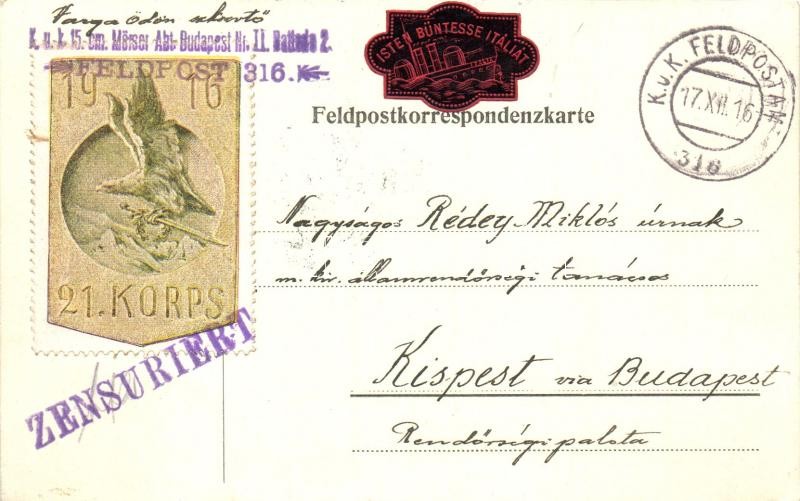 Varga Ödön
K. u. k. 15. cm. Mörser Abt. Budapest Nr. II. Batterie 2.
FELDPOST 316.
ISTEN BÜNTESSE ITÁLIÁT
K.u.K. FELDPOSTAMT
17.XII.16
316
Feldpostkorrespondenzkarte
1916
21. KORPS
ZENSURIERT
Nagyságos Rédey Miklós úrnak
m. kir. államrendőrségi tanácsos
Kispest via Budapest
Rendőrségi palota